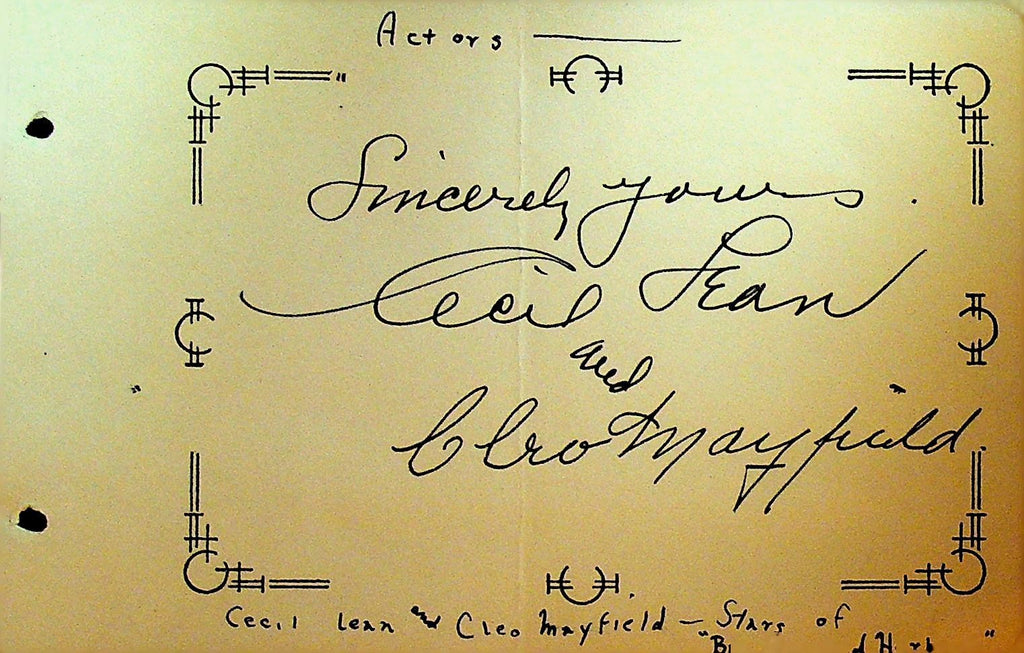 Actors
Sincerely yours.
Cecil Lean
and
Cleo Mayfield.
Cecil Lean and Cleo Mayfield — Stars of